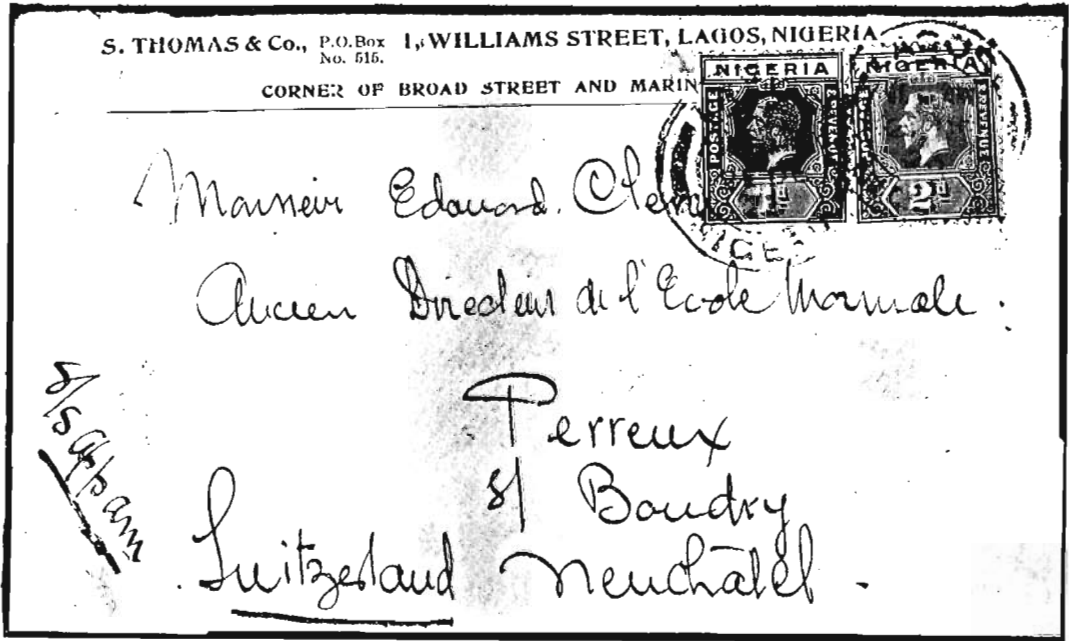 S. THOMAS & Co., P.O. Box No. 515. 1, WILLIAMS STREET, LAGOS, NIGERIA
CORNER OF BROAD STREET AND MARIN
NIGERIA NIGERIA
POSTAGE REVENUE REVENUE
2D
NIGE
Monsieur Edouard. Clem
Ancien Directeur de l'Ecole Normale.
Perreux
s/ Boudry
Switzerland Neuchâtel.
s/s